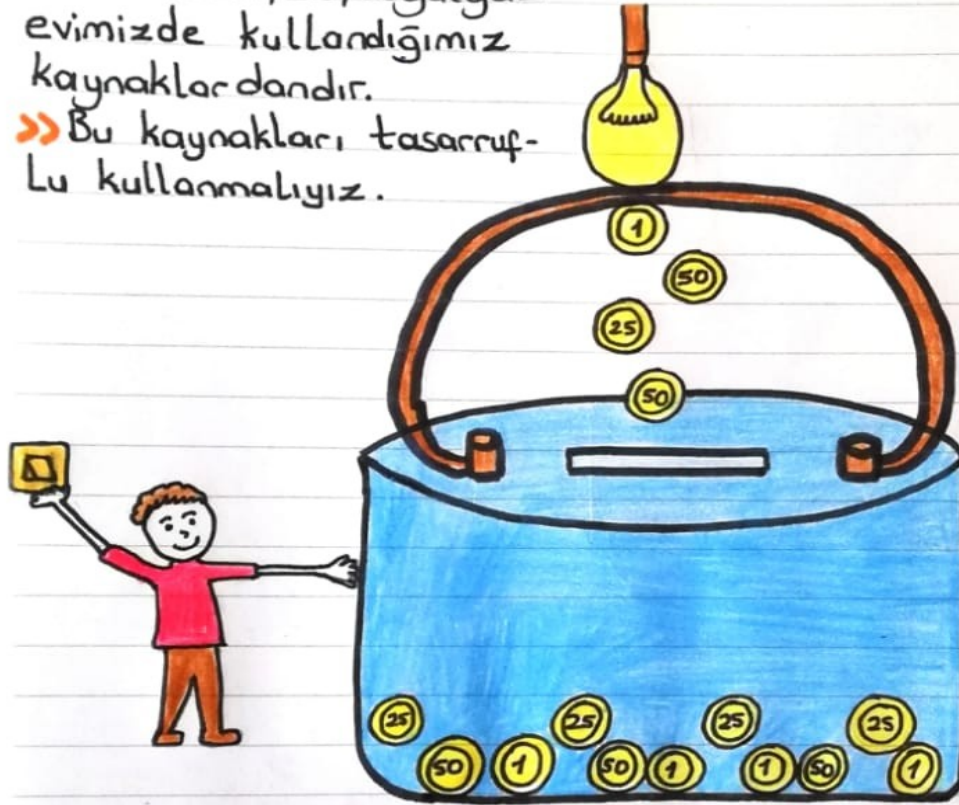 evimizde kullandığımız
kaynaklardandır.
>> Bu kaynakları tasarruf-
Lu kullanmalıyız.
1
50
25
50
25
25
25
25
50
1
50
1
1
50
1